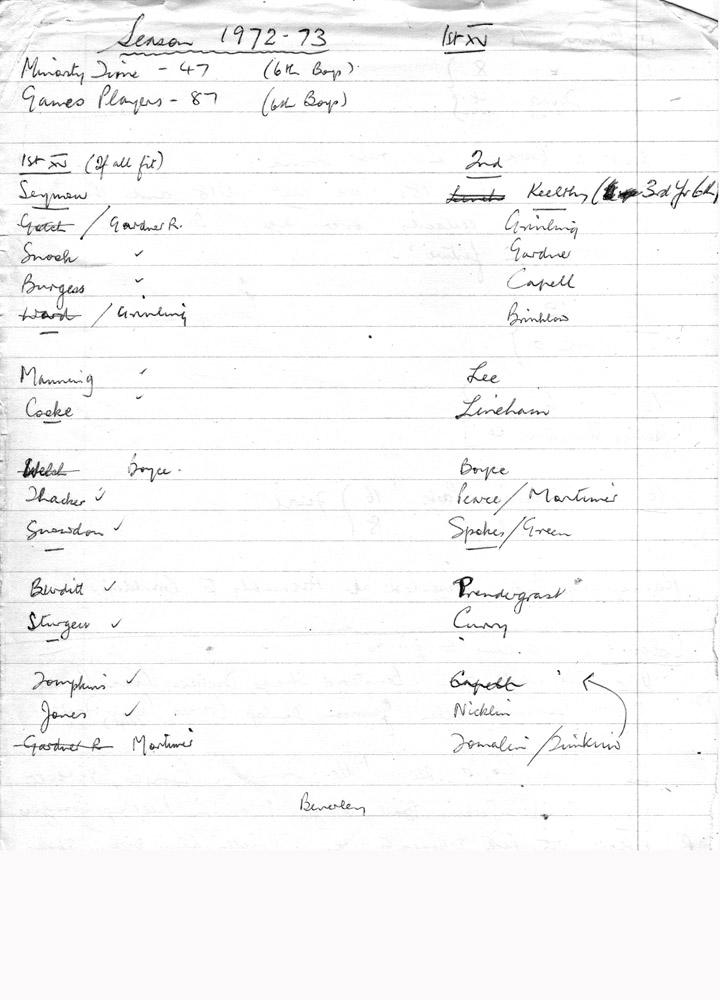 Season 1972-73 1st XV
Minority Time - 47 (6th Boys)
Games Players - 87 (6th Boys)
1st XV (If all fit) 2nd
Seymour Keelthy (3rd Yr 6th)
Gotch / Gardner R. Grinling
Snook ✓ Gardner
Burgess ✓ Capell
Ward / Grinling Brinklow
Manning ✓ Lee
Cooke ✓ Lineham
Welsh Boyce. Boyce
Thacker ✓ Pearce / Mortimer
Snowdon ✓ Spokes / Green
Burditt ✓ Prendergrast
Sturgess ✓ Curry
Tompkins ✓ Capell
Jones ✓ Nicklin
Gardner R Mortimer Tomalin / Simkins
Beverley